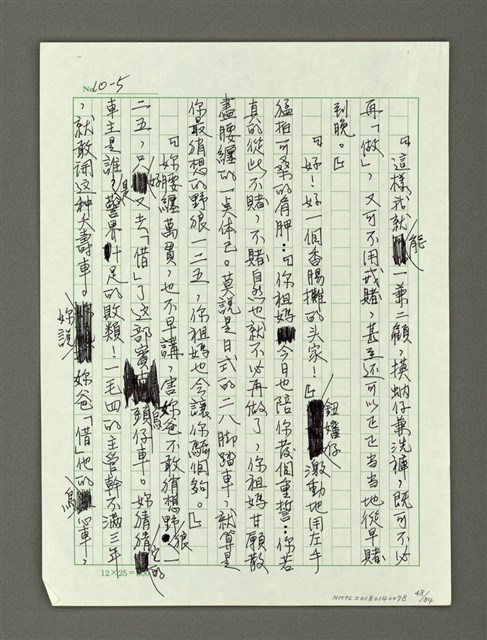 No. 10-5
『這樣我就能一兼二顧，摸蛤仔兼洗褲，既可不必
再「做」，又可不用戒賭，甚至还可以正正当当地從早賭
到晚。』
『好！好一個香腸攤的头家！』鈕擔仔激動地用左手
猛拍可桑的肩胛…『你祖媽今日也陪你發個重誓…你若
真的從此不賭，不賭自然也就不必再做了，你祖媽甘願散
盡腰纏的一点体己。莫說是日式的二八脚踏車，就算是
你最稍想的野狼一二五，你祖媽也令讓你騎個夠。』
『妳腰纏萬貫，也不早講，害妳爸不敢稍想野狼一
二五，只好又去「借」了这部寶烏頭仔車。妳猜猜它的
車主是誰？警界十足的敗類！一毛四的主管幹不滿三年
，就敢開这种大壽車。妳說妳爸「借」他的烏心車，
12×25=300
NMTL20180140098
48/84